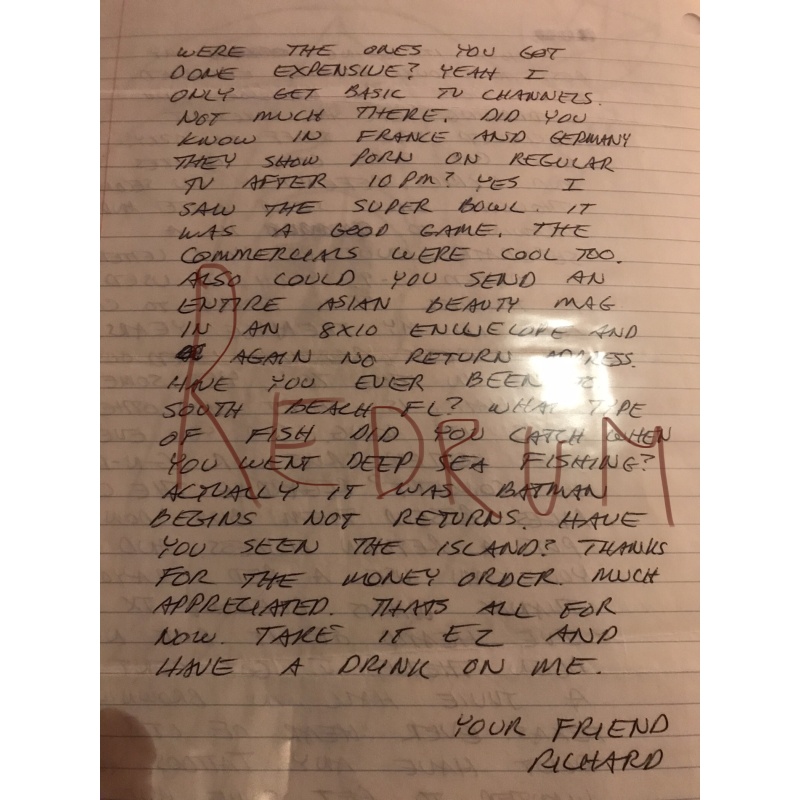 WERE THE ONES YOU GOT
DONE EXPENSIVE? YEAH I
ONLY GET BASIC TV CHANNELS.
NOT MUCH THERE. DID YOU
KNOW IN FRANCE AND GERMANY
THEY SHOW PORN ON REGULAR
TV AFTER 10 PM? YES I
SAW THE SUPER BOWL. IT
WAS A GOOD GAME. THE
COMMERCIALS WERE COOL TOO.
ALSO COULD YOU SEND AN
ENTIRE ASIAN BEAUTY MAG
IN AN 8X10 ENWELOPE AND
AGAIN NO RETURN ADDRESS.
HAVE YOU EVER BEEN TO
SOUTH BEACH FL? WHAT TYPE
OF FISH DID YOU CATCH WHEN
YOU WENT DEEP SEA FISHING?
ACTUALLY IT WAS BATMAN
BEGINS NOT RETURNS. HAVE
YOU SEEN THE ISLAND? THANKS
FOR THE MONEY ORDER. MUCH
APPRECIATED. THATS ALL FOR
NOW. TAKE IT EZ AND
HAVE A DRINK ON ME.
YOUR FRIEND
RICHARD
REDRUM